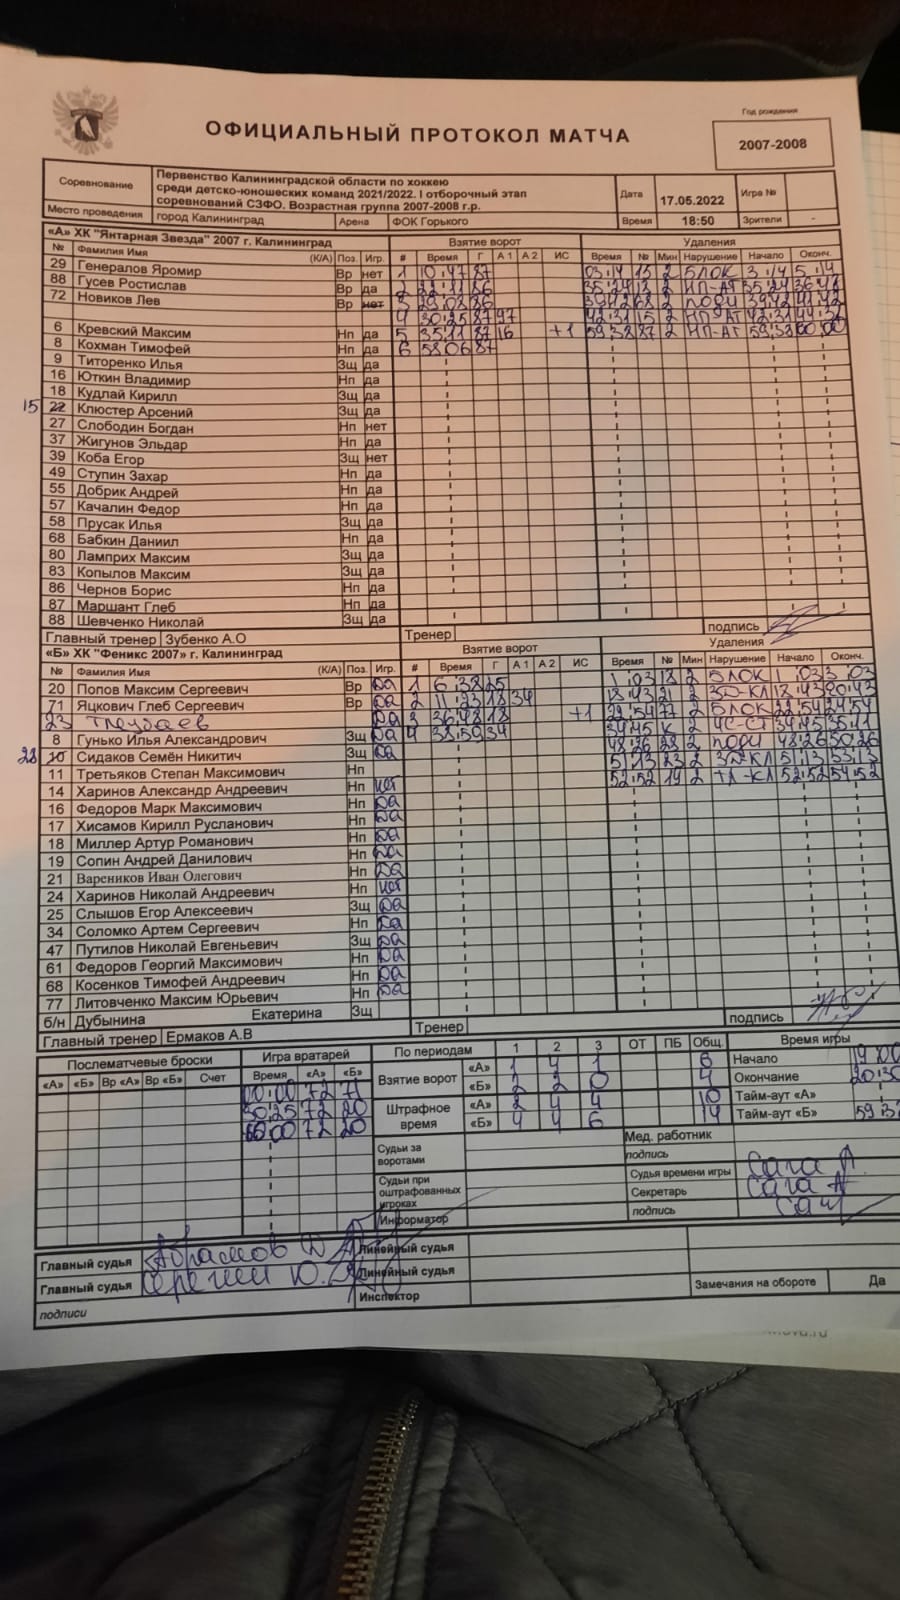 ОФИЦИАЛЬНЫЙ ПРОТОКОЛ МАТЧА
Год рождения
2007-2008
Соревнование
Первенство Калининградской области по хоккею
среди детско-юношеских команд 2021/2022. I отборочный этап
соревнований СЗФО. Возрастная группа 2007-2008 г.р.
Дата 17.05.2022 Игра №
Место проведения город Калининград Арена ФОК Горького Время 18:50 Зрители -
«А» ХК "Янтарная Звезда" 2007 г. Калининград Взятие ворот Удаления
№ Фамилия Имя (К/А) Поз. Игр. # Время Г А 1 А 2 ИС Время № Мин Нарушение Начало Оконч.
29 Генералов Яромир Вр нет 1 10 47 87 03 14 15 2 БЛОК 3 14 5 14
88 Гусев Ростислав Вр да 2 22 11 86 35 24 13 2 НП-АТ 35 24 36 48
72 Новиков Лев Вр нет 3 29 08 86 39 42 68 2 ПОДН 39 42 41 42
4 30 25 87 97 42 31 15 2 НП-АТ 42 31 44 31
6 Кревский Максим Нп да 5 35 11 87 16 +1 59 38 87 2 НП-АТ 59 38 60 00
8 Кохман Тимофей Нп да 6 58 06 87
9 Титоренко Илья Зщ да
16 Юткин Владимир Нп да
18 Кудлай Кирилл Зщ да
15 22 Клюстер Арсений Зщ да
27 Слободин Богдан Нп нет
37 Жигунов Эльдар Нп да
39 Коба Егор Зщ нет
49 Ступин Захар Нп да
55 Добрик Андрей Нп да
57 Качалин Федор Нп да
58 Прусак Илья Зщ да
68 Бабкин Даниил Нп да
80 Ламприх Максим Зщ да
83 Копылов Максим Зщ да
86 Чернов Борис Нп да
87 Маршант Глеб Нп да
88 Шевченко Николай Зщ да
Главный тренер Зубенко А.О Тренер подпись
«Б» ХК "Феникс 2007» г. Калининград Взятие ворот Удаления
№ Фамилия Имя (К/А) Поз. Игр. # Время Г А 1 А 2 ИС Время № Мин Нарушение Начало Оконч.
20 Попов Максим Сергеевич Вр Да 1 6 38 25 1 03 18 2 БЛОК 1 03 3 03
71 Яцкович Глеб Сергеевич Вр Да 2 11 23 18 34 18 43 21 2 ЗД-КЛ 18 43 20 43
23 Да 3 36 48 18 +1 22 54 77 2 БЛОК 22 54 24 54
8 Гунько Илья Александрович Зщ Да 4 38 59 34 34 45 К 2 ЧС-СТ 34 45 35 11
28 10 Сидаков Семён Никитич Зщ Да 48 26 28 2 ПОДН 48 26 50 26
11 Третьяков Степан Максимович Нп 51 13 23 2 ЗД-КЛ 51 13 53 13
14 Харинов Александр Андреевич Нп нет 52 52 19 2 52 52 54 52
16 Федоров Марк Максимович Нп Да
17 Хисамов Кирилл Русланович Нп Да
18 Миллер Артур Романович Нп Да
19 Сопин Андрей Данилович Нп Да
21 Вареников Иван Олегович Нп Да
24 Харинов Николай Андреевич Нп нет
25 Слышов Егор Алексеевич Зщ Да
34 Соломко Артем Сергеевич Нп Да
47 Путилов Николай Евгеньевич Зщ Да
61 Федоров Георгий Максимович Нп Да
68 Косенков Тимофей Андреевич Нп Да
77 Литовченко Максим Юрьевич Нп Да
б/н Дубынина Екатерина Зщ
Главный тренер Ермаков А.В Тренер подпись
Послематчевые броски Игра вратарей По периодам 1 2 3 ОТ ПБ Общ. Время игры
«А» «Б» Вр «А» Вр «Б» Счет Время «А» «Б»
Взятие ворот «А» 1 4 1 6 Начало 19 00
«Б» 2 2 0 4 Окончание 20:30
Штрафное время «А» 2 4 4 10 Тайм-аут «А»
«Б» 4 4 6 14 Тайм-аут «Б» 59
00:00 72 71
30:25 72 20
60 00 72 20
Судьи за воротами
Мед. работник
подпись
Судьи при оштрафованных игроках
Судья времени игры Сага А.
Секретарь Сага А
Информатор
подпись
Главный судья Абрамов Д Линейный судья
Главный судья Сергеин Ю. Линейный судья
подписи Инспектор Замечания на обороте Да